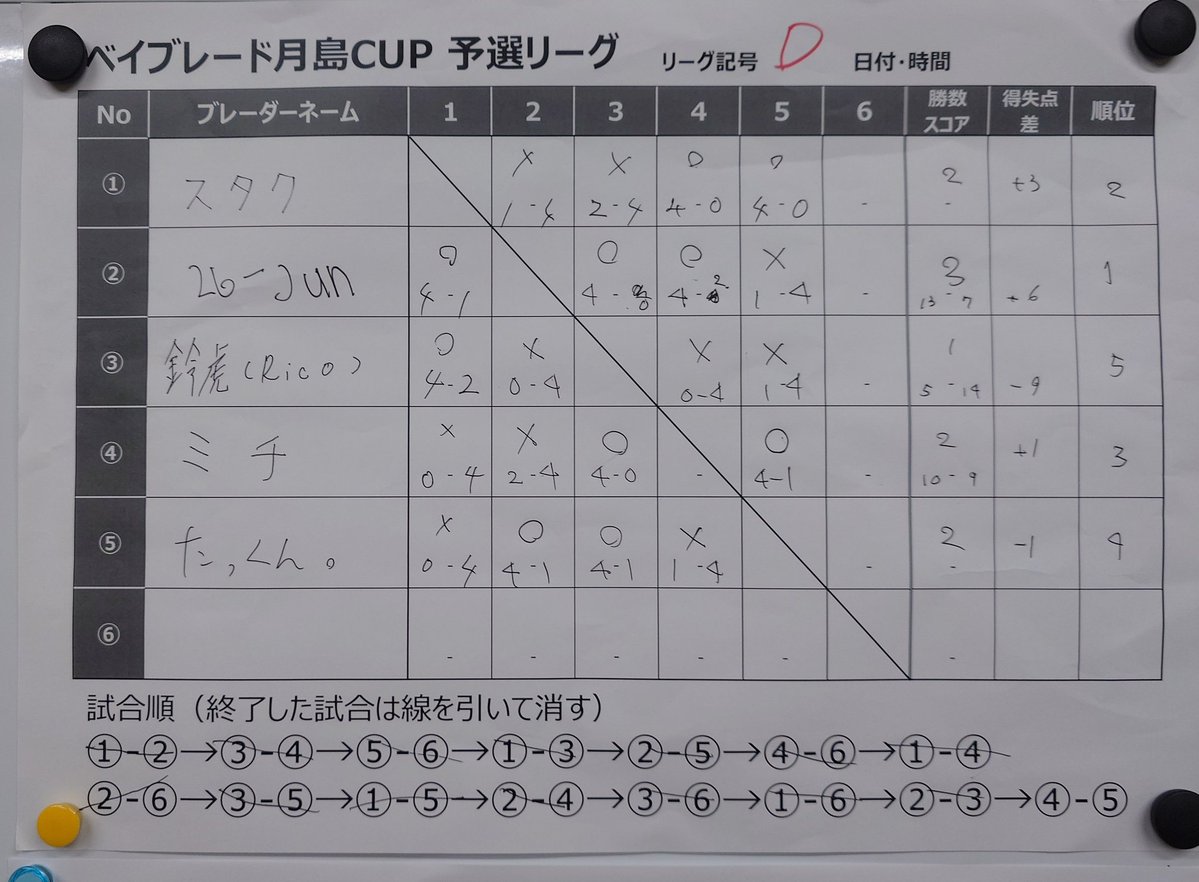 ベイブレード月島CUP 予選リーグ リーグ記号 D 日付・時間
No ブレーダーネーム 1 2 3 4 5 6 勝数スコア 得失点差 順位
① スタク × 1-4 × 2-4 ○ 4-0 ○ 4-0 - 2 - +3 2
② 26-Jun ○ 4-1 ○ 4-0 ○ 4-2 × 1-4 - 3 13-7 +6 1
③ 鈴虎(Rico) ○ 4-2 × 0-4 × 0-4 × 1-4 - 1 5-14 -9 5
④ ミチ × 0-4 × 2-4 ○ 4-0 - ○ 4-1 - 2 10-9 +1 3
⑤ たっくん。 × 0-4 ○ 4-1 ○ 4-1 × 1-4 - 2 - -1 4
⑥ - - - - - -
試合順（終了した試合は線を引いて消す）
①-②→③-④→⑤-⑥→①-③→②-⑤→④-⑥→①-④
②-⑥→③-⑤→①-⑤→②-④→③-⑥→①-⑥→②-③→④-⑤